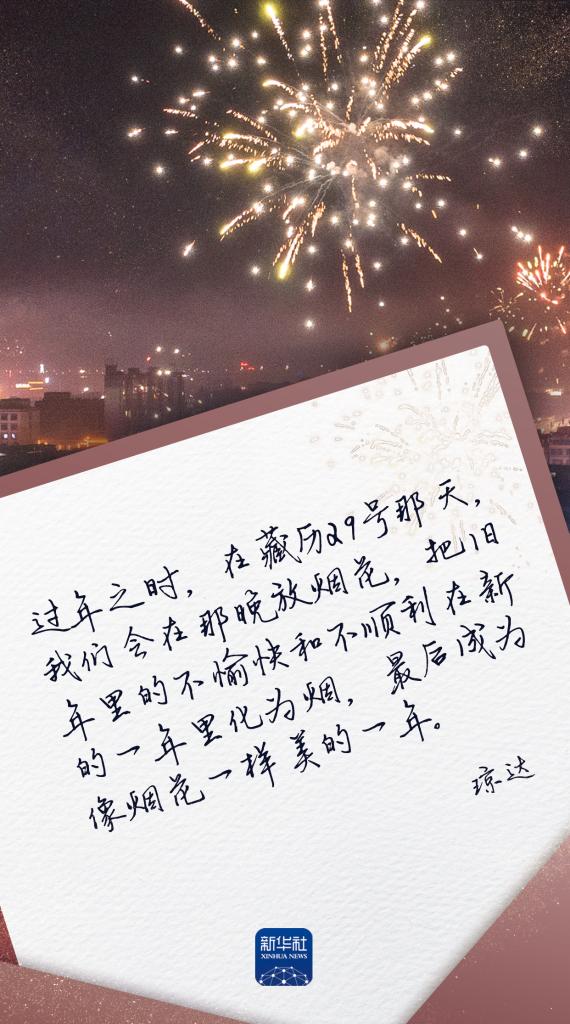 过年之时，在藏历29号那天，
我们会在那晚放烟花，把旧
年里的不愉快和不顺利在新
的一年里化为烟，最后成为
像烟花一样美的一年。
琼达
新华社
XINHUA NEWS